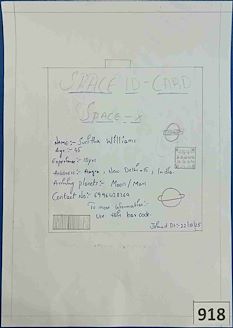 SPACE ID-CARD
SPACE-X
Name:- Sunitha Williams
Age:- 45
Experience:- 10yrs
Address:- Angra, New Delhi-15, India.
Arriving planets:- Moon/Mars
Contact No:-
To more Information:-
Use this bar code.
Issued Dt:-22/8/25
918